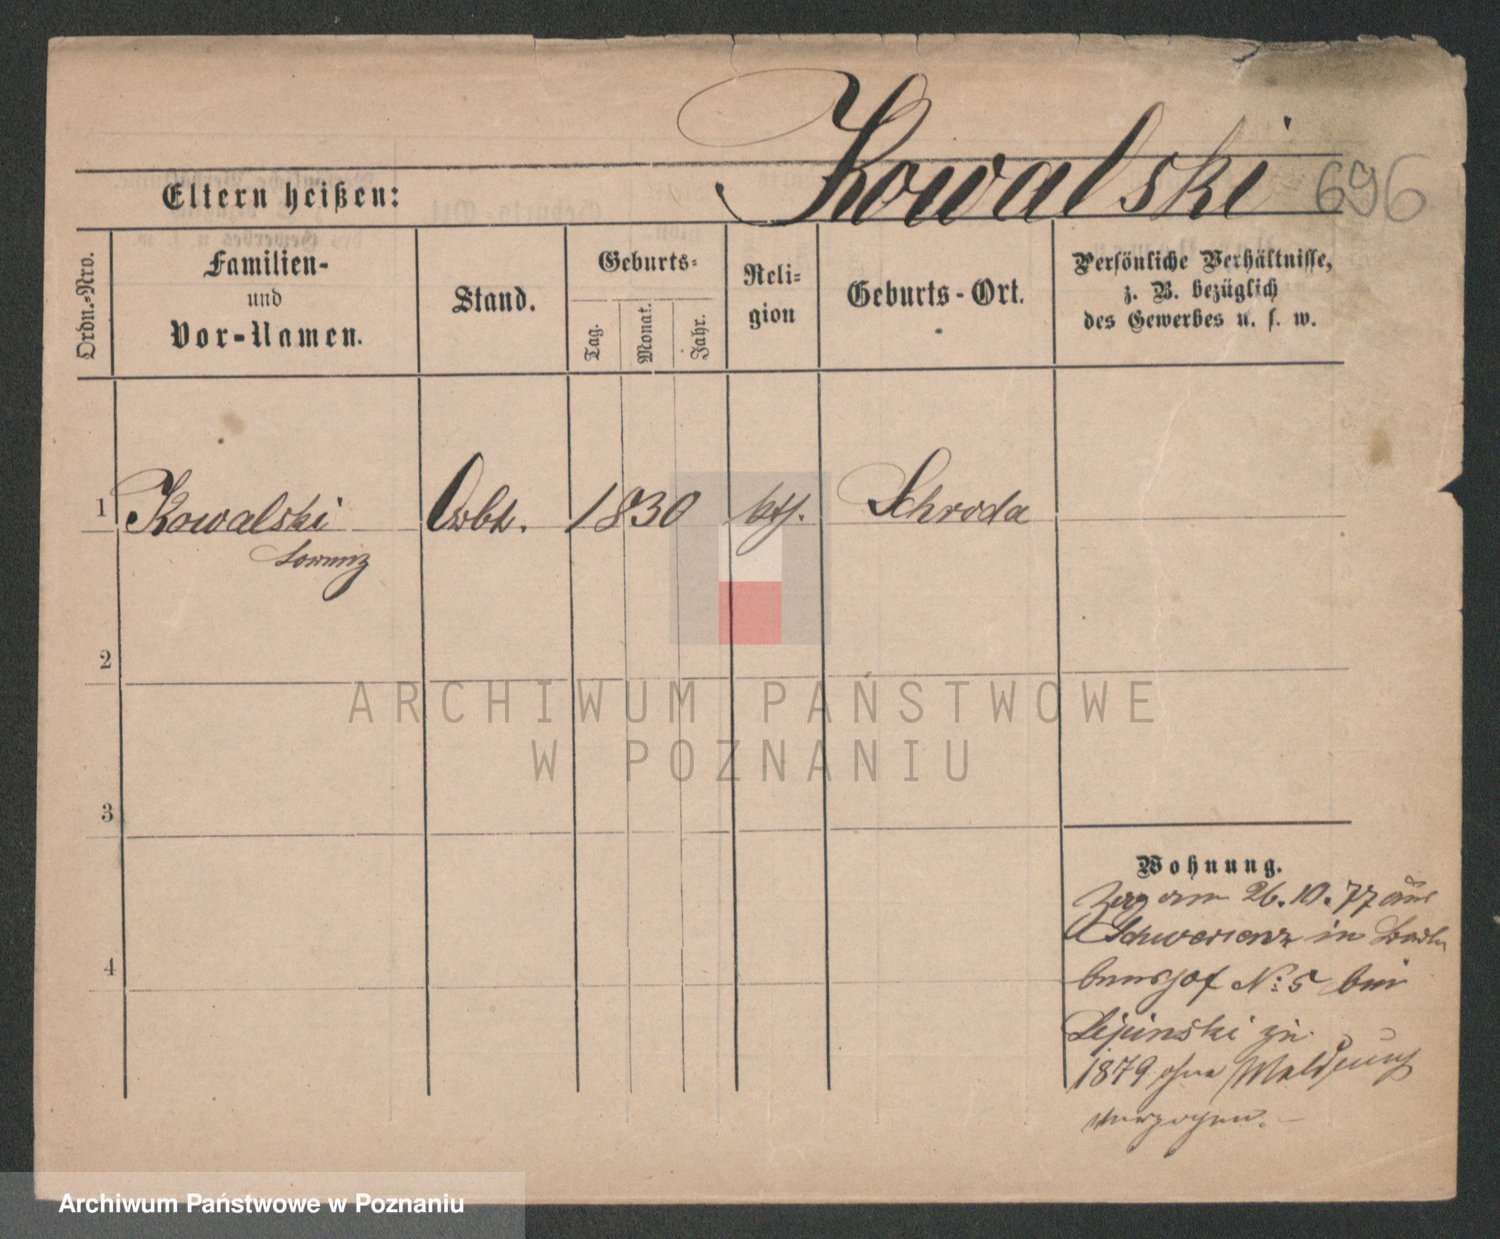 Kowalski 696
Eltern heißen:
Ordn.-Nro.
Familien-
und
Vor-Namen.
Stand.
Geburts-
Tag.
Monat.
Jahr.
Reli-
gion
Geburts-Ort.
Persönliche Verhältnisse,
z. B. bezüglich
des Gewerbes u. s. w.
1 Kowalski Arbt. 1830 kth. Schroda
Lorenz
2
ARCHIWUM PAŃSTWOWE
W POZNANIU
3
Wohnung.
Zog am 26.10.77 aus
Schwersenz in
4
No 5 bei
Lipinski zu
1879 ohne Meldung
verzogen.
Archiwum Państwowe w Poznaniu